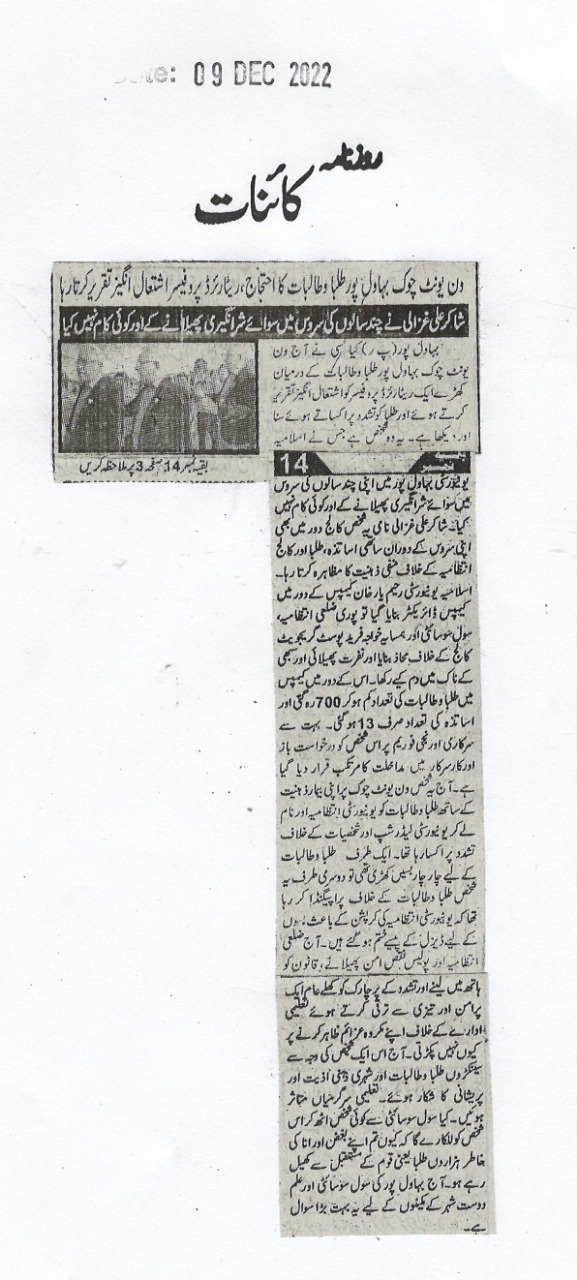 Date: 09 DEC 2022
روزنامہ
کائنات
ون یونٹ چوک بہاول پور طلبا و طالبات کا احتجاج، ریٹائرڈ پروفیسر اشتعال انگیز تقریر کرتا رہا
شاکر علی غزالی نے چند سالوں کی سروس میں سوائے شرانگیزی پھیلانے کے اور کوئی کام نہیں کیا
بہاول پور (پ ر) کیا کسی نے آج ون
یونٹ چوک بہاول پور طلبا و طالبات کے درمیان
کھڑے ایک ریٹائرڈ پروفیسر کو اشتعال انگیز تقریر
کرتے ہوئے اور طلبا کو تشدد پر اکساتے ہوئے سنا
اور دیکھا ہے۔ یہ وہ شخص ہے جس نے اسلامیہ
بقیہ نمبر 14 صفحہ 3 پر ملاحظہ کریں
بقیہ نمبر 14
یونیورسٹی بہاول پور میں اپنی چند سالوں کی سروس
میں سوائے شرانگیزی پھیلانے کے اور کوئی کام نہیں
کیا۔ شاکر علی غزالی نامی یہ شخص کالج دور میں بھی
اپنی سروس کے دوران ساتھی اساتذہ، طلبا اور کالج
انتظامیہ کے خلاف منفی ذہنیت کا مظاہرہ کرتا رہا۔
اسلامیہ یونیورسٹی رحیم یار خان کیمپس کے دور میں
کیمپس ڈائریکٹر بنایا گیا تو پوری ضلعی انتظامیہ،
سول سوسائٹی اور ہمسایہ خواجہ فرید پوسٹ گریجویٹ
کالج کے خلاف محاذ بنایا اور نفرت پھیلائی اور سبھی
کے ناک میں دم کیے رکھا۔ اس کے دور میں کیمپس
میں طلبا و طالبات کی تعداد کم ہو کر 700 رہ گئی اور
اساتذہ کی تعداد صرف 13 ہو گئی۔ بہت سے
سرکاری اور نجی فورم پر اس شخص کو درخواست باز
اور کار سرکار میں مداخلت کا مرتکب قرار دیا گیا
ہے۔ آج یہ شخص ون یونٹ چوک پر اپنی بیمار ذہنیت
کے ساتھ طلبا و طالبات کو یونیورسٹی انتظامیہ اور نام
لے کر یونیورسٹی لیڈرشپ اور شخصیات کے خلاف
تشدد پر اکسا رہا تھا۔ ایک طرف طلبا و طالبات
کے لیے چار چار بسیں کھڑی تھی تو دوسری طرف یہ
شخص طلبا و طالبات کے خلاف پراپیگنڈا کر رہا
تھا کہ یونیورسٹی انتظامیہ کی کرپشن کے باعث بسوں
کے لیے ڈیزل کے پیسے ختم ہو گئے ہیں۔ آج ضلعی
انتظامیہ اور پولیس نقص امن پھیلانے، قانون کو
ہاتھ میں لینے اور تشدد کے پرچارک کو کھلے عام ایک
پرامن اور تیزی سے ترقی کرتے ہوئے تعلیمی
ادارے کے خلاف اپنے مکروہ عزائم ظاہر کرنے پر
کیوں نہیں پکڑتی۔ آج اس ایک شخص کی وجہ سے
سینکڑوں طلبا و طالبات اور شہری ذہنی اذیت اور
پریشانی کا شکار ہوئے۔ تعلیمی سرگرمیاں متاثر
ہوئیں۔ کیا سول سوسائٹی سے کوئی شخص اٹھ کر اس
شخص کو للکارے گا کہ کیوں تم اپنے بغض اور انا کی
خاطر ہزاروں طلبا یعنی قوم کے مستقبل سے کھیل
رہے ہو۔ آج بہاول پور کی سول سوسائٹی اور علم
دوست شہر کے مکینوں کے لیے یہ بہت بڑا سوال
ہے۔